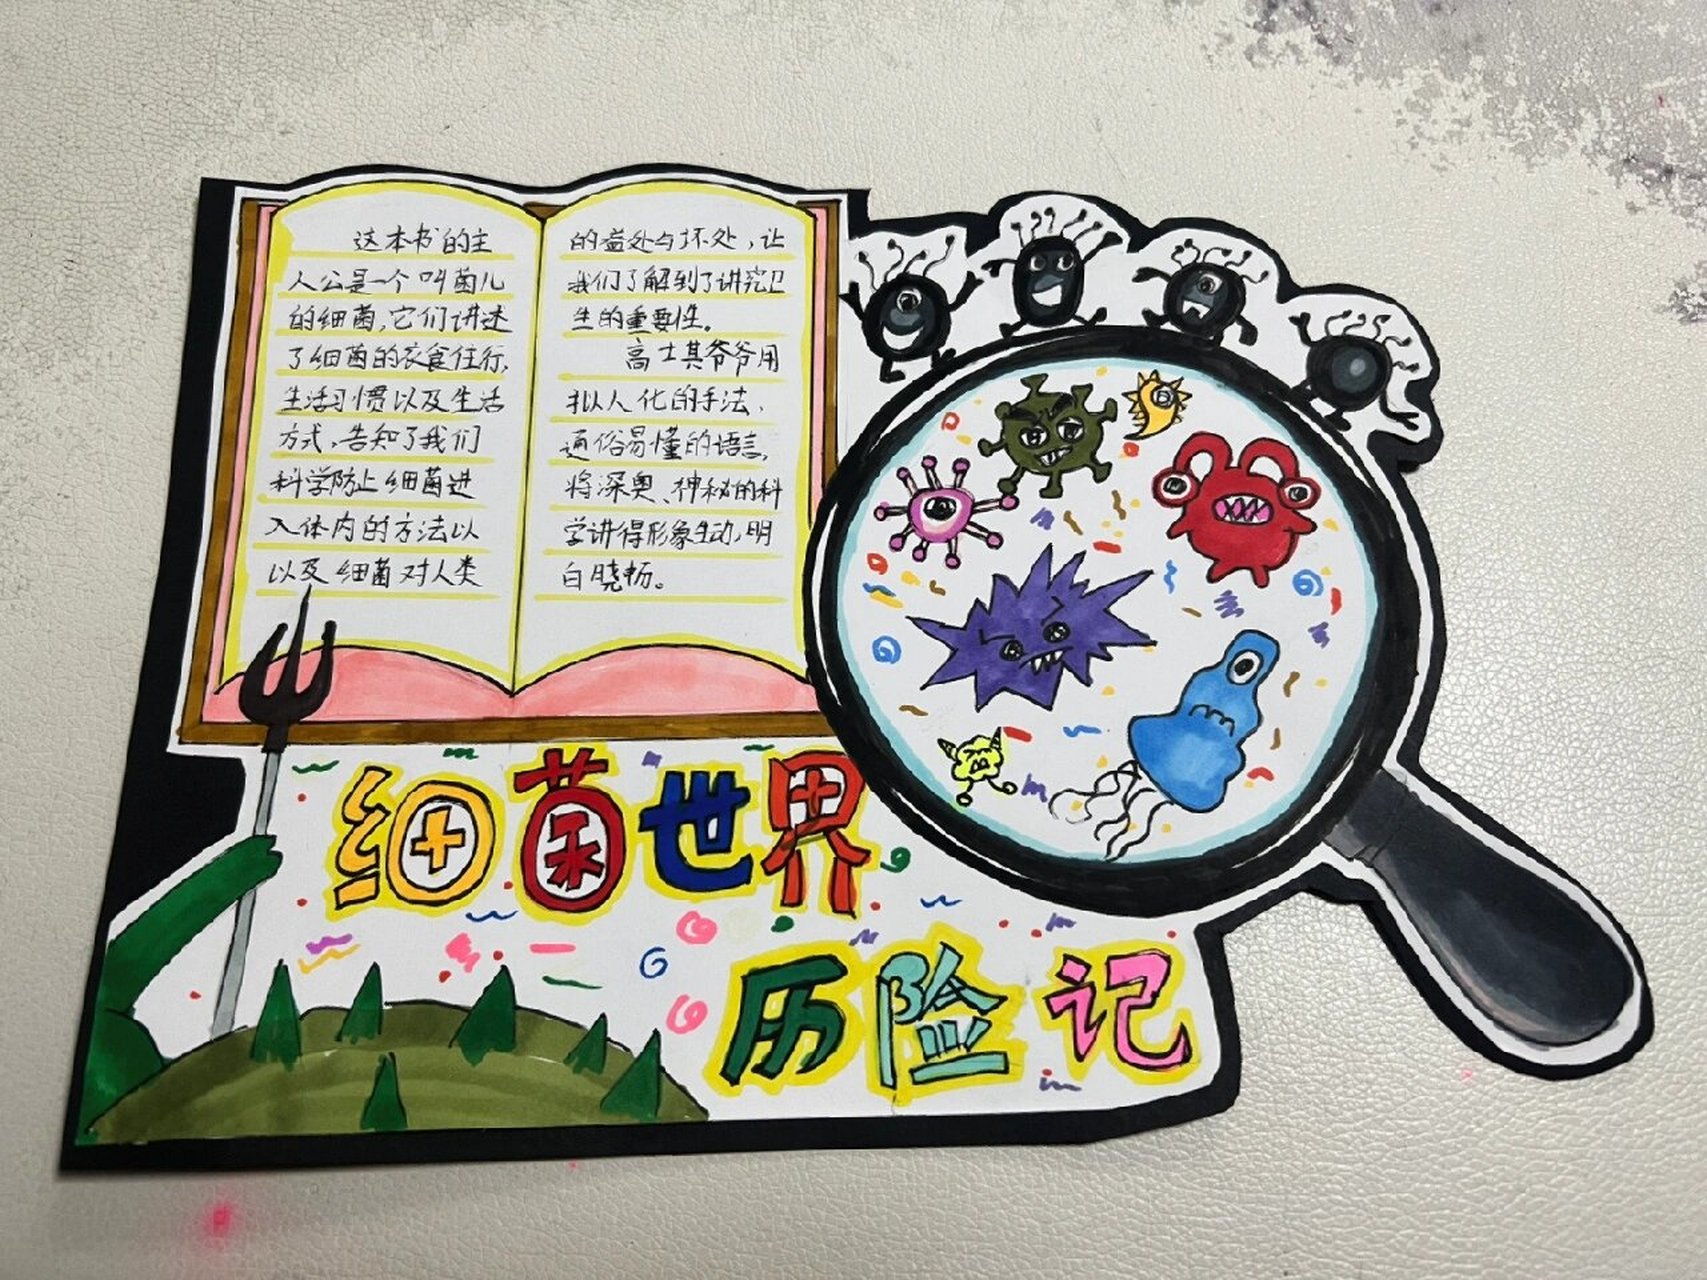 这本书的主
人公是一个叫菌儿
的细菌,它们讲述
了细菌的衣食住行,
生活习惯以及生活
方式,告知了我们
科学防止细菌进
入体内的方法以
以及细菌对人类
的益处与坏处,让
我们了解到了讲究卫
生的重要性。
高士其爷爷用
拟人化的手法、
通俗易懂的语言,
将深奥、神秘的科
学讲得形象生动,明
白晓畅。
细菌世界
历险记